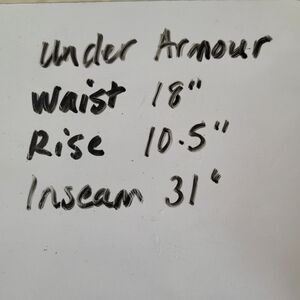 Under Armour
Waist 18"
Rise 10.5"
Inseam 31"